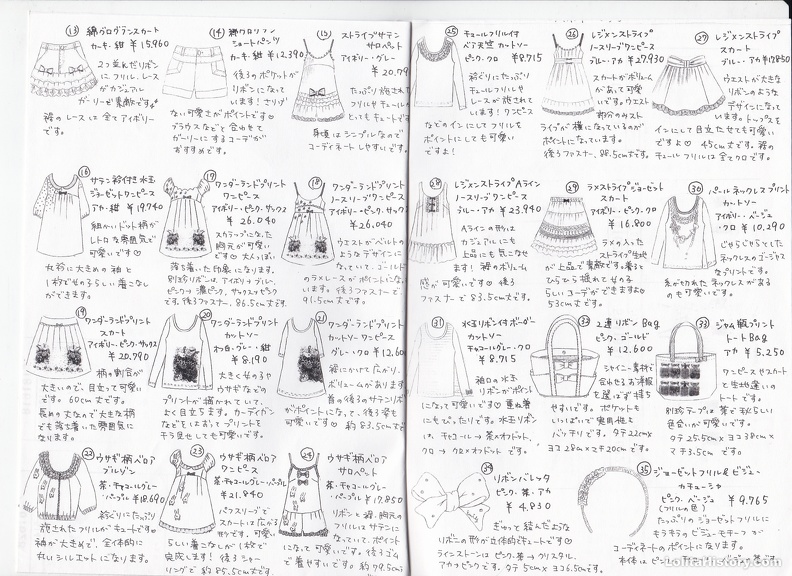 ⑬ 綿グログランスカート
カーキ・紺 ¥15,960
2つ並んだリボン
にフリル、レース
がカジュアル
ガーリーで素敵です。
裾のレースは全てアイボリー
です。
⑭ 綿グログラン
ショートパンツ
カーキ・紺 ¥12,390
後ろのポケットが
リボンになって
います!さりげ
ない可愛さがポイントです♡
ブラウスなどと合わせて
ガーリーにするコーデが
おすすめです。
⑮ ストライプサテン
サロペット
アイボリー・グレー
¥20,79
たっぷり施された
フリルやチュールが
とてもキュートです
身頃はシンプルなので
コーディネートしやすいです。
⑯ サテン衿付き水玉
ジョーゼットワンピース
アカ・紺 ¥19,740
細かいドット柄が
レトロな雰囲気で
可愛いです♡
丸衿に大きめの袖と
1枚でせるらしい着こなし
ができます。
⑰ ワンダーランドプリント
ワンピース
アイボリー・ピンク・サックス
¥26,040
スカラップになった
胸元が可愛い
です♡大人っぽい
落ち着いた印象になります。
後ろファスナー、86.5cm丈です。
⑱ ワンダーランドプリント
ノースリーブワンピース
アイボリー・ピンク・サックス
¥26,040
ウエストがベルトの
ようなデザインに
なっていて、ゴールド
のラメレースがポイントになっ
ています。後ろファスナーで
91.5cm丈です。
⑲ ワンダーランドプリント
スカート
アイボリー・ピンク・サックス
¥20,790
柄の割合が
大きいので、目立って可愛い
です。60cm丈です。
長めの丈なので大きな柄
でも落ち着いた雰囲気に
なります。
⑳ ワンダーランドプリント
カットソー
オフ白・グレー・紺
¥8,190
大きくせるや
ウサギなどの
プリントが描かれていて、
よく目立ちます。カーディガン
などをはおってプリントを
チラ見せしても可愛いです。
㉑ ワンダーランドプリント
カットソーワンピース
グレー・クロ ¥12,60
裾にかけて広がり、
ボリュームがあります
首の後ろのサテンリボン
がポイントになって、後ろ姿も
可愛いです♡約83.5cmで
㉒ ウサギ柄ベロア
ブルゾン
茶・チャコールグレー
・パープル ¥18,690
衿ぐりにたっぷり
施されたフリルがキュートです♡
袖が大きめで、全体的に
丸いシルエットになります。
㉓ ウサギ柄ベロア
ワンピース
茶・チャコールグレー・パープル
¥21,840
パフスリーブで
スカートは広がる
形です。可愛
らしい着こなしが1枚で
完成します!後ろシャー
リングで約85.5cm丈です
㉔ ウサギ柄ベロア
サロペット
茶・チャコールグレー
・パープル ¥17,850
リボンと裾、胸元の
フリルはサテンに
なっていて、ポイント
になって可愛いです。後ろゴム
で着やすいです。約79.5cm
㉕ チュールフリル付
ベア天竺カットソー
ピンク・クロ ¥8,715
衿ぐりにたっぷり
チュールフリルや
レースが施されて
います!ワンピース
などのインにしてフリルを
ポイントにしても可愛い
ですよ!
㉖ レジメンストライプ
ノースリーブワンピース
ブルー・アカ ¥27,930
スカートがボリューム
があって可愛
いです。ウエスト
部分のみスト
ライプが横になっているのが
ポイントになっています。
後ろファスナー、88.5cm丈です。
㉗ レジメンストライプ
スカート
ブルー・アカ ¥17,850
ウエストが大きな
リボンのような
デザインになっ
ています。トップスを
インにして目立たせても可愛い
ですよ♡ 45cm丈です。裾の
チュールフリルは全てクロです。
㉘ レジメンストライプAライン
ノースリーブワンピース
ブルー・アカ ¥23,940
Aラインの形は
カジュアルにも
上品にも気こなせ
ます!裾のボリューム
感が可愛いです♡後ろ
ファスナーで83.5cm丈です。
㉙ ラメストライプジョーゼット
スカート
アイボリー・ピンク・クロ
¥16,800
ラメの入った
ストライプ生地
が上品で素敵です。着ると
ひらひら揺れてせる
らしいコーデができますよ♡
53cm丈です。
㉚ パールネックレスプリント
カットソー
アイボリー・ベージュ
・クロ ¥10,290
じゃらじゃらとした
ネックレスのゴージャス
なプリントです。
糸が切れたネックレスが家る
のも可愛いです。
㉛ 水玉リボン付ボーダー
カットソー
チャコールグレー・クロ
¥8,715
袖口の水玉
リボンがポイント
になって可愛いです♡重ね着
にもぴったりです。水玉リボン
は、チャコール→茶×オフドット、
クロ→クロ×オフドットです。
㉜ 2連リボンBag
ピンク、ゴールド
¥12,600
シャイニー素材で
合わせるお洋服
を選ばず持ち
やすいです。ポケットも
いっぱいで実用性も
バッチリです。タテ22cm×
ヨコ28cm×マチ20cmです。
㉝ ジャム瓶プリント
トートBag
アカ ¥5,250
ワンピースやスカート
と生地違いの
トートです。
別珍テープは茶で秋らしい
色合いが可愛いです。
タテ25.5cm×ヨコ38cm×
マチ3.5cmです。
㉞ リボンバレッタ
ピンク・茶・アカ
¥4,830
ぎゅっと結んだような
リボンの形が立体的でキュートです♡
ラインストーンはピンク、茶→クリスタル、
アカ→ピンクです。タテ5cm×ヨコ6.5cmです。
㉟ ジョーゼットフリル&ビジュー
カチューシャ
ピンク、ベージュ
(フリルの色) ¥9,765
たっぷりのジョーゼットフリルに
キラキラのビジューモチーフが
コーディネートのポイントになります。
LolitaHistory.com